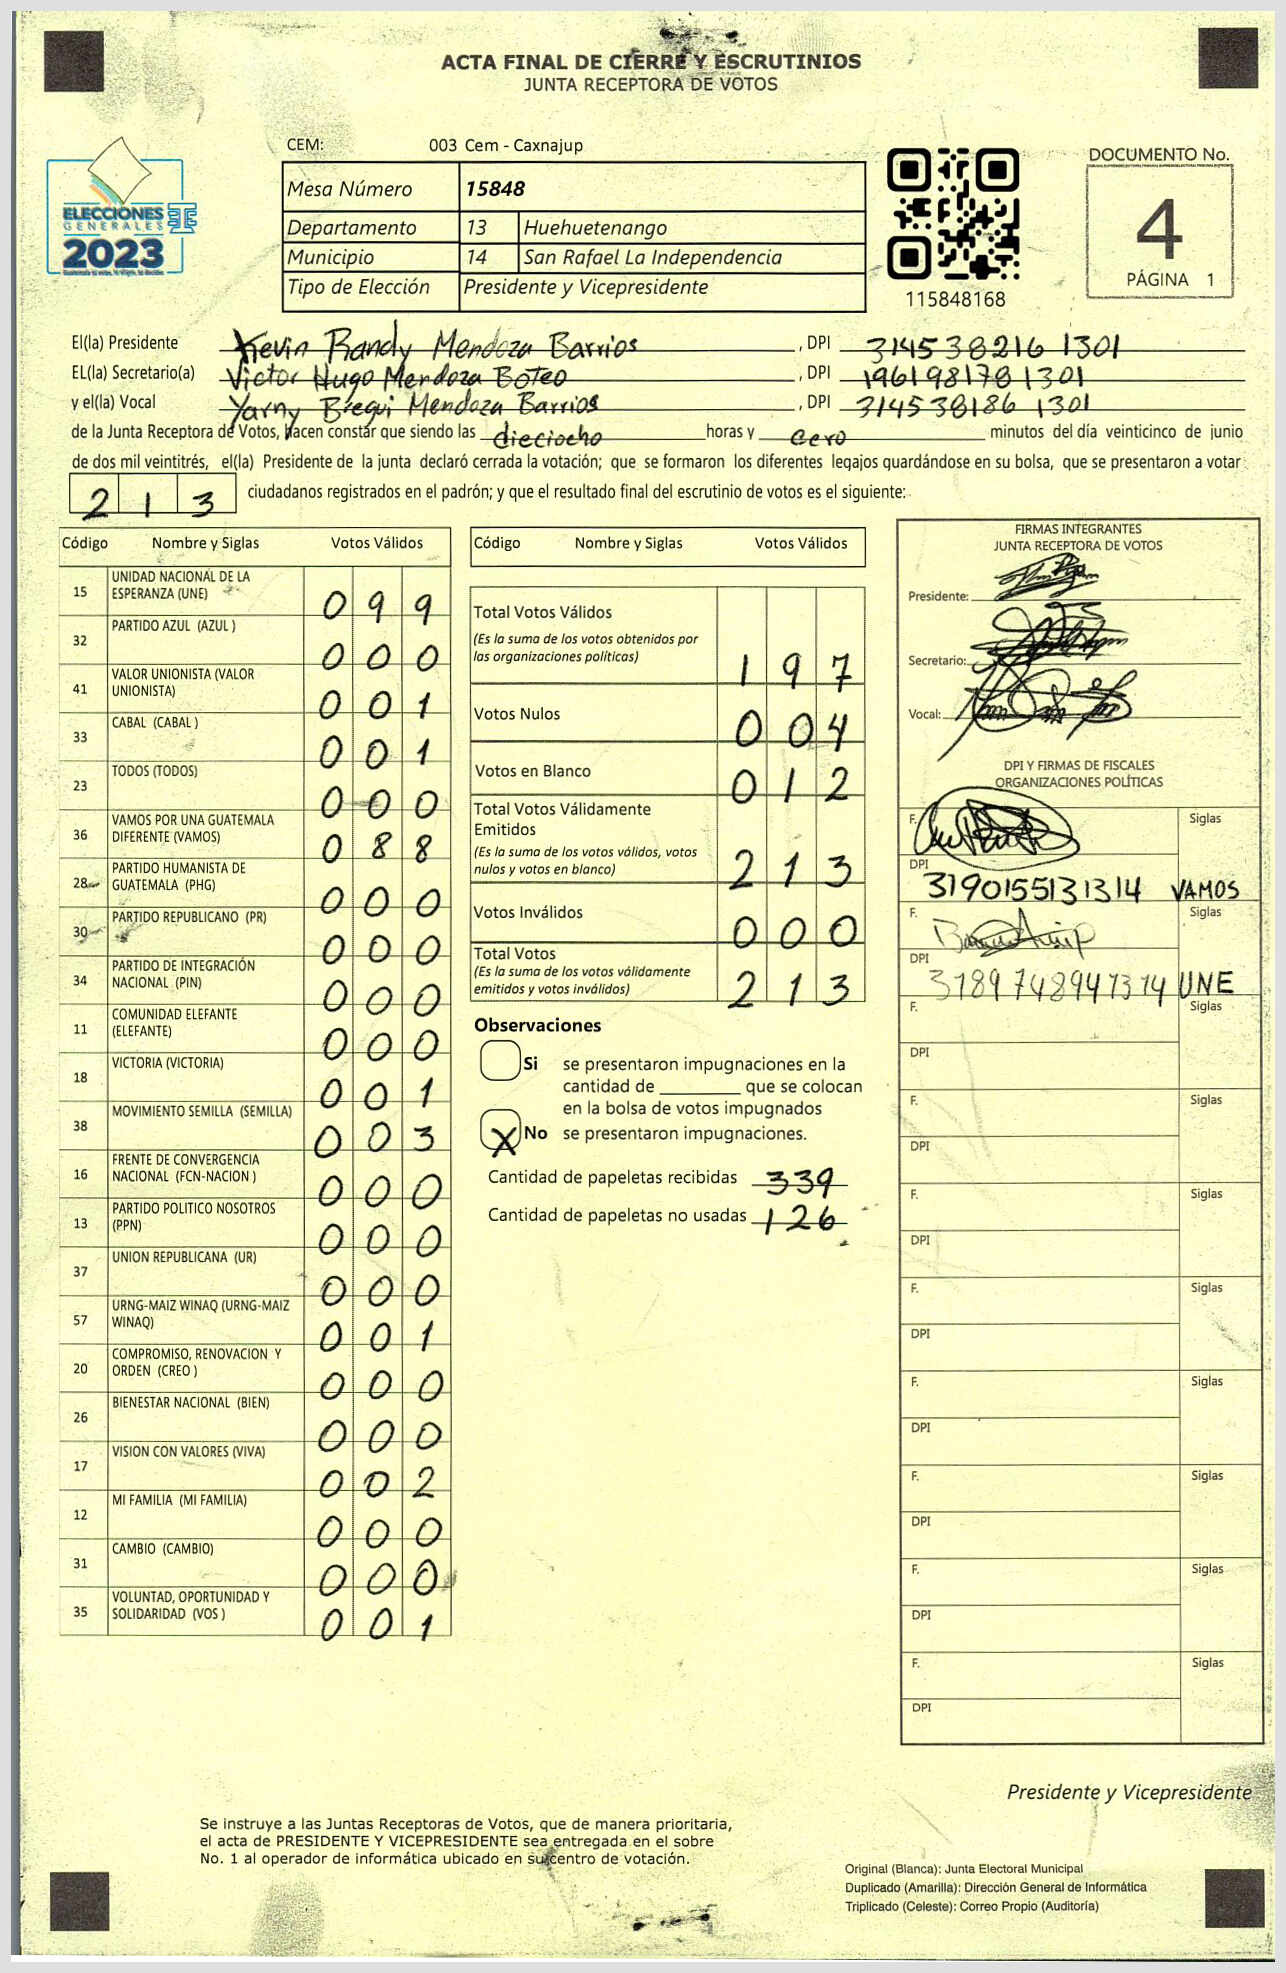 ACTA FINAL DE CIERRE Y ESCRUTINIOS
JUNTA RECEPTORA DE VOTOS
CEM: 003 Cem - Caxnajup
ELECCIONES
GENERALES
2023
Mesa Número 15848
Departamento 13 Huehuetenango
Municipio 14 San Rafael La Independencia
Tipo de Elección Presidente y Vicepresidente
115848168
DOCUMENTO No.
4
PÁGINA 1
El(la) Presidente Kevin Randy Mendoza Barrios , DPI 314538216 1301
EL(la) Secretario(a) Victor Hugo Mendoza Boteo , DPI 196198178 1301
y el(la) Vocal Yarny Bregui Mendoza Barrios , DPI 314538186 1301
de la Junta Receptora de Votos, hacen constar que siendo las dieciocho horas y cero minutos del día veinticinco de junio
de dos mil veintitrés, el(la) Presidente de la junta declaró cerrada la votación; que se formaron los diferentes legajos guardándose en su bolsa, que se presentaron a votar
213 ciudadanos registrados en el padrón; y que el resultado final del escrutinio de votos es el siguiente:
Código Nombre y Siglas Votos Válidos
15 UNIDAD NACIONAL DE LA ESPERANZA (UNE) 099
32 PARTIDO AZUL (AZUL ) 000
41 VALOR UNIONISTA (VALOR UNIONISTA) 001
33 CABAL (CABAL ) 001
23 TODOS (TODOS) 000
36 VAMOS POR UNA GUATEMALA DIFERENTE (VAMOS) 088
28 PARTIDO HUMANISTA DE GUATEMALA (PHG) 000
30 PARTIDO REPUBLICANO (PR) 000
34 PARTIDO DE INTEGRACIÓN NACIONAL (PIN) 000
11 COMUNIDAD ELEFANTE (ELEFANTE) 000
18 VICTORIA (VICTORIA) 001
38 MOVIMIENTO SEMILLA (SEMILLA) 003
16 FRENTE DE CONVERGENCIA NACIONAL (FCN-NACION ) 000
13 PARTIDO POLITICO NOSOTROS (PPN) 000
37 UNION REPUBLICANA (UR) 000
57 URNG-MAIZ WINAQ (URNG-MAIZ WINAQ) 001
20 COMPROMISO, RENOVACION Y ORDEN (CREO ) 000
26 BIENESTAR NACIONAL (BIEN) 000
17 VISION CON VALORES (VIVA) 002
12 MI FAMILIA (MI FAMILIA) 000
31 CAMBIO (CAMBIO) 000
35 VOLUNTAD, OPORTUNIDAD Y SOLIDARIDAD (VOS ) 001
Código Nombre y Siglas Votos Válidos
Total Votos Válidos
(Es la suma de los votos obtenidos por
las organizaciones políticas) 197
Votos Nulos 004
Votos en Blanco 012
Total Votos Válidamente
Emitidos
(Es la suma de los votos válidos, votos
nulos y votos en blanco) 213
Votos Inválidos 000
Total Votos
(Es la suma de los votos válidamente
emitidos y votos inválidos) 213
Observaciones
Si se presentaron impugnaciones en la
cantidad de ________ que se colocan
en la bolsa de votos impugnados
X No se presentaron impugnaciones.
Cantidad de papeletas recibidas 339
Cantidad de papeletas no usadas 126
FIRMAS INTEGRANTES
JUNTA RECEPTORA DE VOTOS
Presidente:
Secretario:
Vocal:
DPI Y FIRMAS DE FISCALES
ORGANIZACIONES POLÍTICAS
F. Siglas
DPI
3190155131314 VAMOS
F. Siglas
DPI
3189748941314 UNE
F. Siglas
DPI
F. Siglas
DPI
F. Siglas
DPI
F. Siglas
DPI
F. Siglas
DPI
F. Siglas
DPI
F. Siglas
DPI
F. Siglas
DPI
Presidente y Vicepresidente
Se instruye a las Juntas Receptoras de Votos, que de manera prioritaria,
el acta de PRESIDENTE Y VICEPRESIDENTE sea entregada en el sobre
No. 1 al operador de informática ubicado en su centro de votación.
Original (Blanca): Junta Electoral Municipal
Duplicado (Amarilla): Dirección General de Informática
Triplicado (Celeste): Correo Propio (Auditoría)